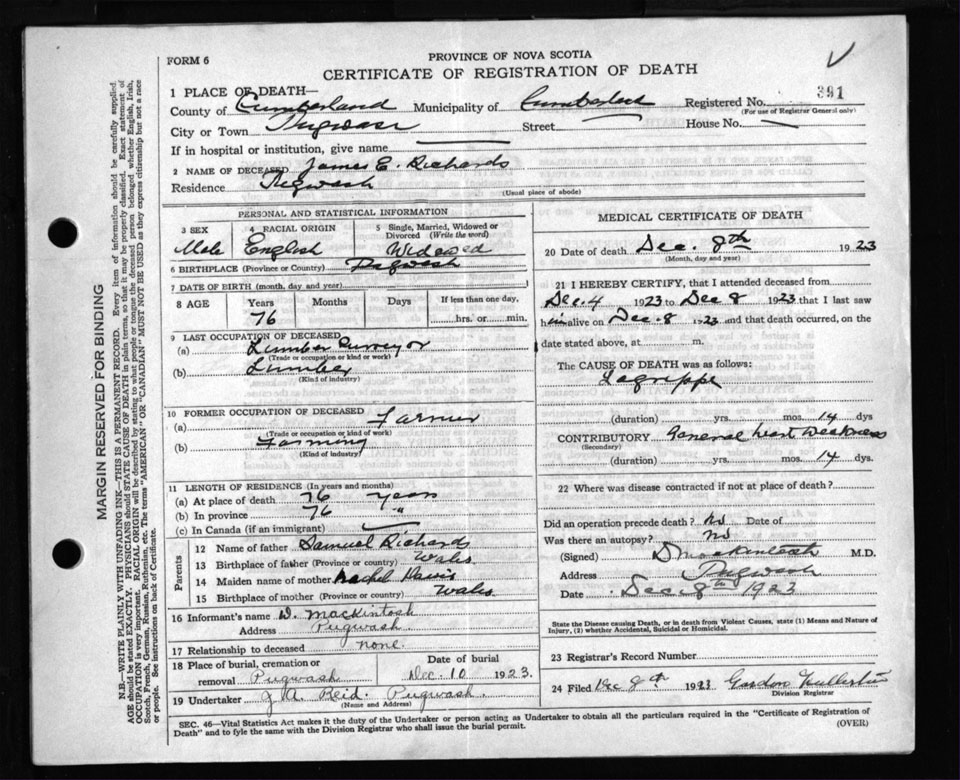 FORM 6
PROVINCE OF NOVA SCOTIA
CERTIFICATE OF REGISTRATION OF DEATH
1 PLACE OF DEATH—
County of Cumberland Municipality of Cumberland Registered No. 391
(For use of Registrar General only)
City or Town Pugwash Street House No.
If in hospital or institution, give name
2 NAME OF DECEASED James E. Richards
Residence Pugwash
(Usual place of abode)
PERSONAL AND STATISTICAL INFORMATION
3 SEX
Male
4 RACIAL ORIGIN
English
5 Single, Married, Widowed or
Divorced (Write the word)
Widowed
6 BIRTHPLACE (Province or Country) Pugwash
7 DATE OF BIRTH (month, day and year)
8 AGE Years Months Days If less than one day,
76 hrs. or min.
9 LAST OCCUPATION OF DECEASED
(a) Lumber Surveyor
(Trade or occupation or kind of work)
(b) Lumber
(Kind of industry)
10 FORMER OCCUPATION OF DECEASED
(a) Farmer
(Trade or occupation or kind of work)
(b) Farming
(Kind of industry)
11 LENGTH OF RESIDENCE (In years and months)
(a) At place of death 76 years
(b) In province 76 "
(c) In Canada (if an immigrant)
Parents
12 Name of father Samuel Richards
13 Birthplace of father (Province or country) Wales
14 Maiden name of mother Rachel Davis
15 Birthplace of mother (Province or country) Wales
16 Informant's name D. Mackintosh
Address Pugwash
17 Relationship to deceased none
18 Place of burial, cremation or
removal Pugwash
Date of burial
Dec. 10 1923.
19 Undertaker J A Reid. Pugwash
(Name and Address)
MEDICAL CERTIFICATE OF DEATH
20 Date of death Dec. 8th 1923
(Month, day and year)
21 I HEREBY CERTIFY, that I attended deceased from
Dec. 4 1923 to Dec 8 1923 that I last saw
him alive on Dec. 8 1923 and that death occurred, on the
date stated above, at m.
The CAUSE OF DEATH was as follows:
Lagrippe
(duration) yrs. mos. 14 dys
CONTRIBUTORY General heart Weakness
(Secondary)
(duration) yrs. mos. 14 dys.
22 Where was disease contracted if not at place of death?
Did an operation precede death? No Date of
Was there an autopsy? No
(Signed) D Mackintosh M.D.
Address Pugwash
Date Dec. 8th 1923
State the Disease causing Death, or in death from Violent Causes, state (1) Means and Nature of
Injury, (2) whether Accidental, Suicidal or Homicidal.
23 Registrar's Record Number
24 Filed Dec 8th 1923 Gordon Fullerton
Division Registrar
SEC. 46—Vital Statistics Act makes it the duty of the Undertaker or person acting as Undertaker to obtain all the particulars required in the "Certificate of Registration of
Death" and to fyle the same with the Division Registrar who shall issue the burial permit.
(OVER)
MARGIN RESERVED FOR BINDING
N.B.—WRITE PLAINLY WITH UNFADING INK—THIS IS A PERMANENT RECORD. Every item of information should be carefully supplied.
AGE should be stated EXACTLY. PHYSICIANS should STATE CAUSE OF DEATH in plain terms, so that it may be properly classified. Exact statement of
OCCUPATION is very important. RACIAL ORIGIN will be described by stating to what people or tongue the deceased person belonged, whether English, Irish,
Scotch, French, German, Russian, Ruthenian, etc. The terms "AMERICAN" OR "CANADIAN" MUST NOT BE USED as they express citizenship but not a race
or people. See instructions on back of Certificate.